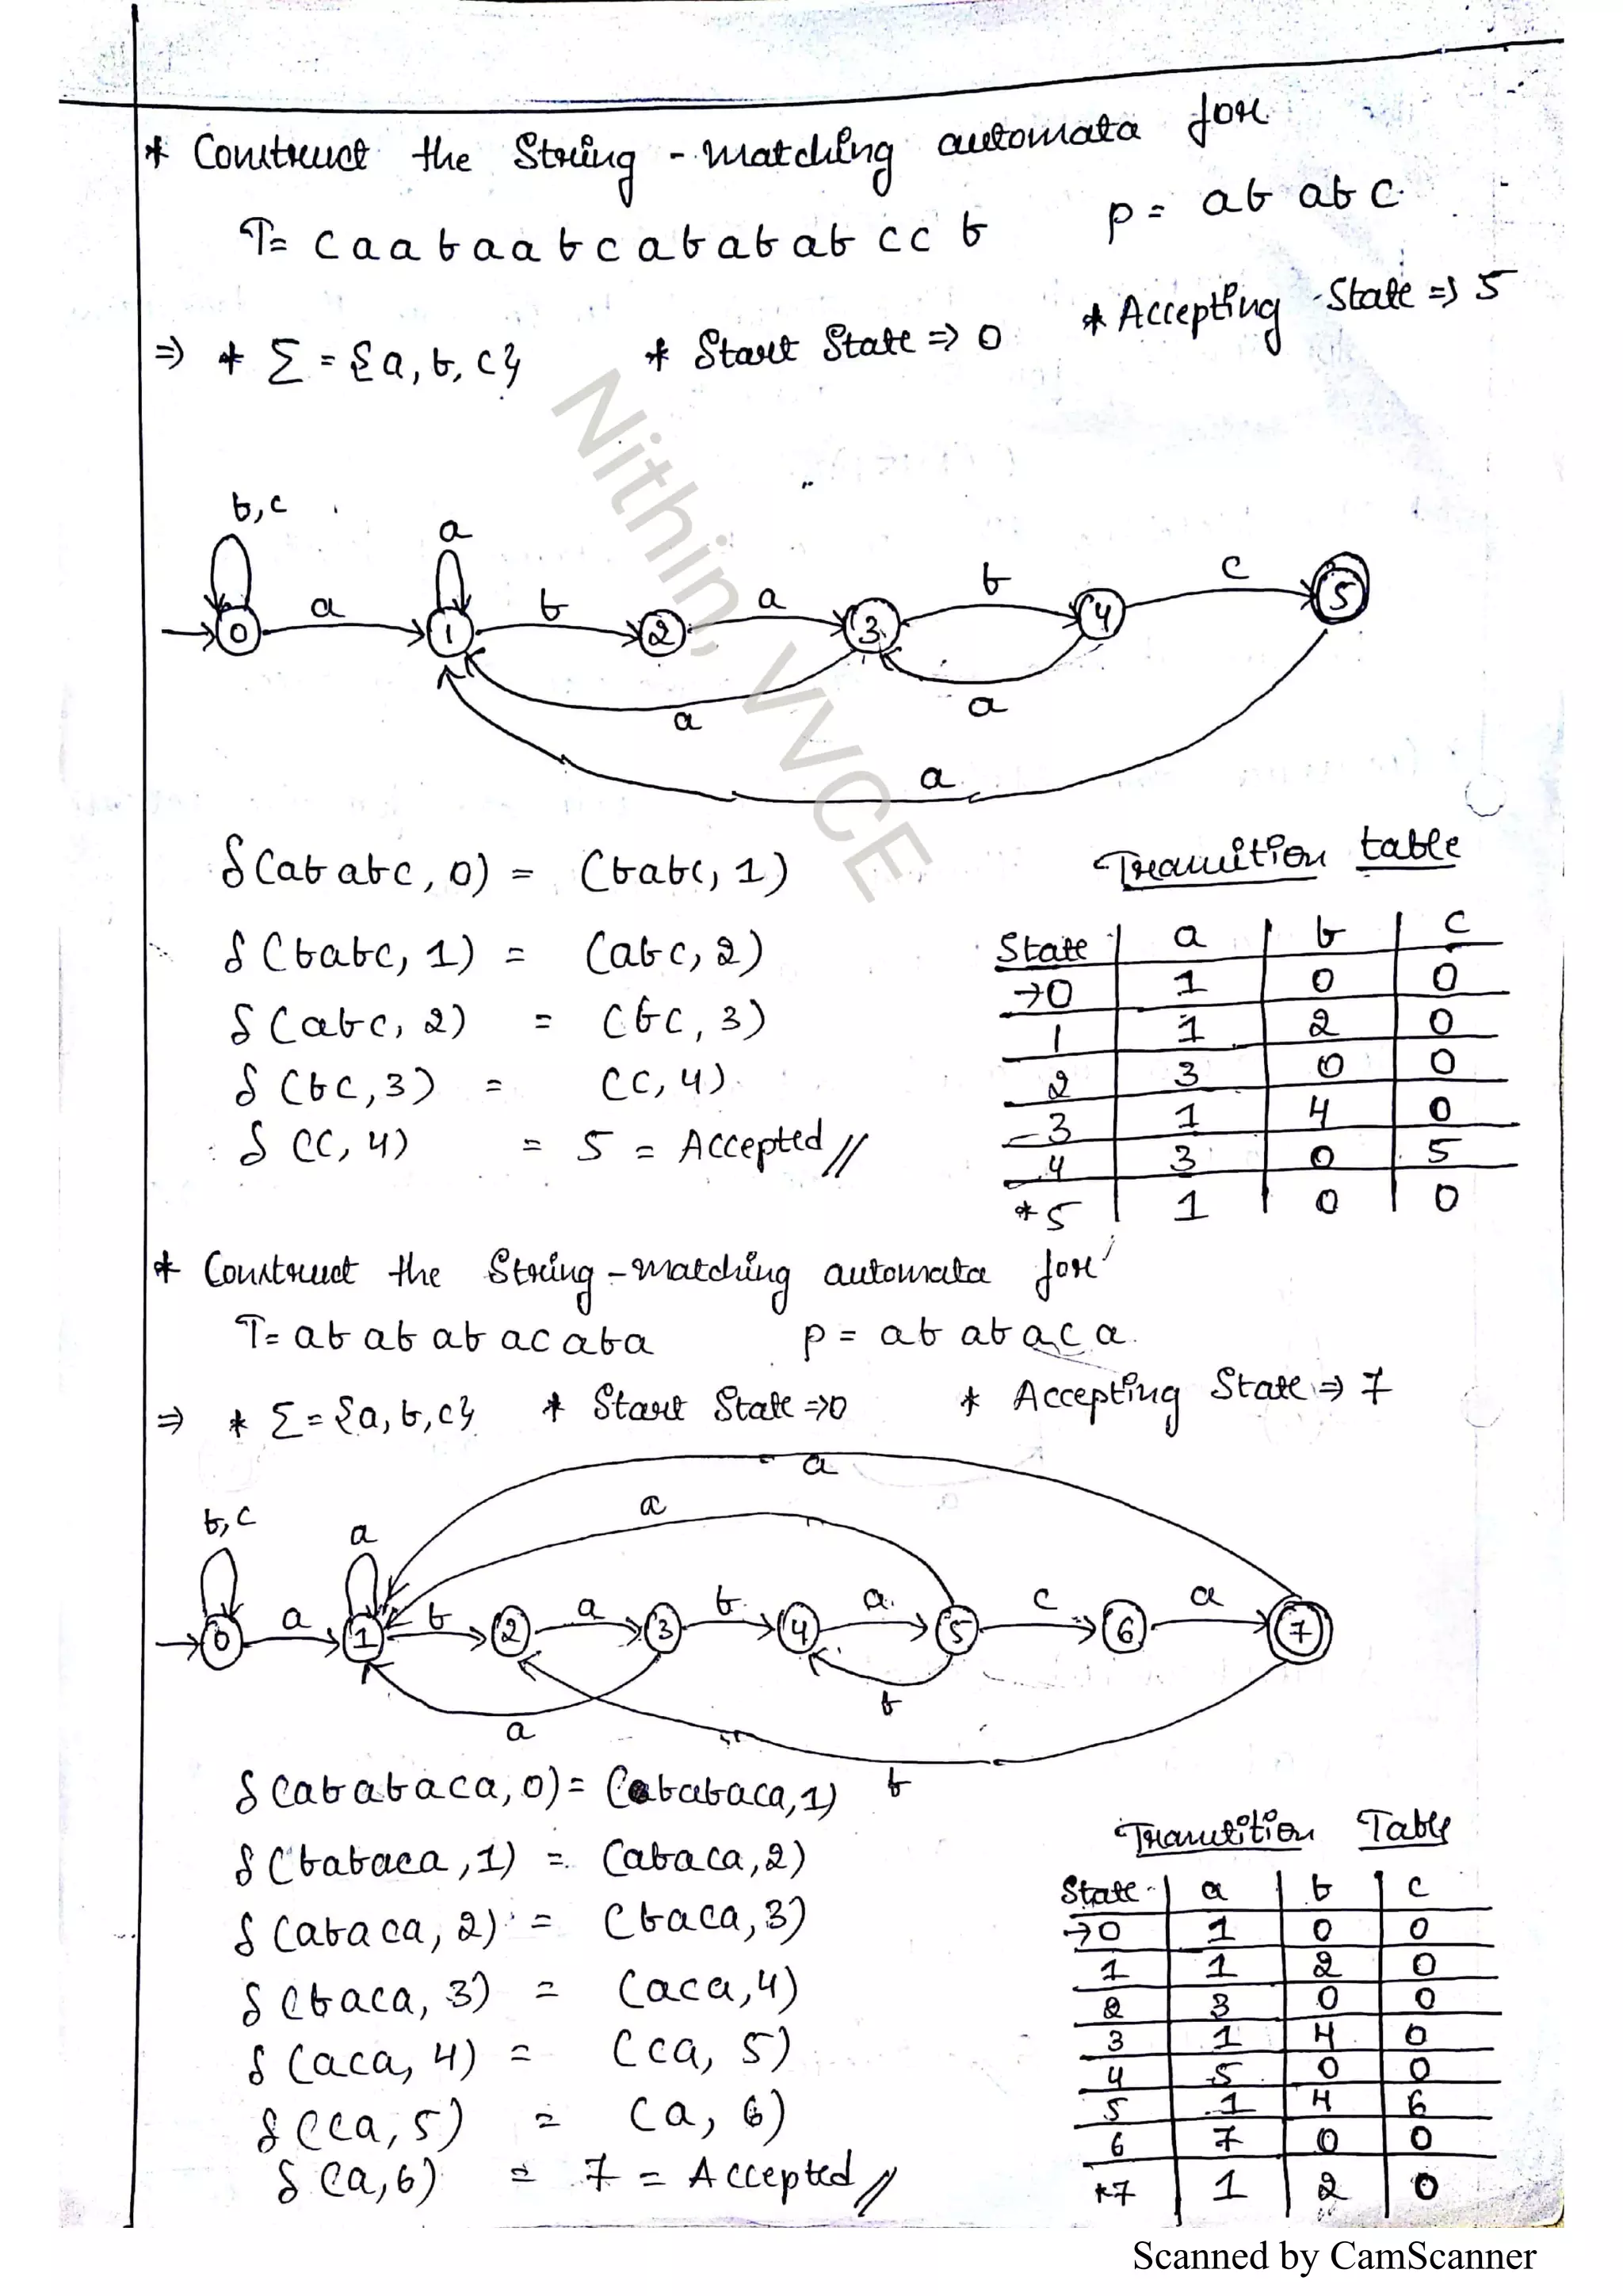 * Construct the String-matching automata for
T= c a a b a a b c a b a b a b c c b    P= a b a b c
⇒ * Σ = {a, b, c}    * Start State ⇒ 0    * Accepting State ⇒ 5
b,c
a
a b a b c
0 1 2 3 4 5
a a
a
Nithin, VVCE
δ(ababc, 0) = (babc, 1)
δ(babc, 1) = (abc, 2)
δ(abc, 2) = (bc, 3)
δ(bc, 3) = (c, 4)
δ(c, 4) = 5 = Accepted //
Transition table
State | a | b | c
→0 | 1 | 0 | 0
1 | 1 | 2 | 0
2 | 3 | 0 | 0
3 | 1 | 4 | 0
4 | 3 | 0 | 5
*5 | 1 | 0 | 0
* Construct the String-matching automata for
T= a b a b a b a c a b a    P= a b a b a c a
⇒ * Σ = {a, b, c}    * Start State ⇒0    * Accepting State ⇒ 7
a
a
b,c a
a b a b a c a
0 1 2 3 4 5 6 7
b
a
b
δ(ababaca, 0) = (babaca, 1)
δ(babaca, 1) = (abaca, 2)
δ(abaca, 2) = (baca, 3)
δ(baca, 3) = (aca, 4)
δ(aca, 4) = (ca, 5)
δ(ca, 5) = (a, 6)
δ(a, 6) = 7 = Accepted //
Transition Table
State | a | b | c
→0 | 1 | 0 | 0
1 | 1 | 2 | 0
2 | 3 | 0 | 0
3 | 1 | 4 | 0
4 | 5 | 0 | 0
5 | 1 | 4 | 6
6 | 7 | 0 | 0
*7 | 1 | 2 | 0
Scanned by CamScanner